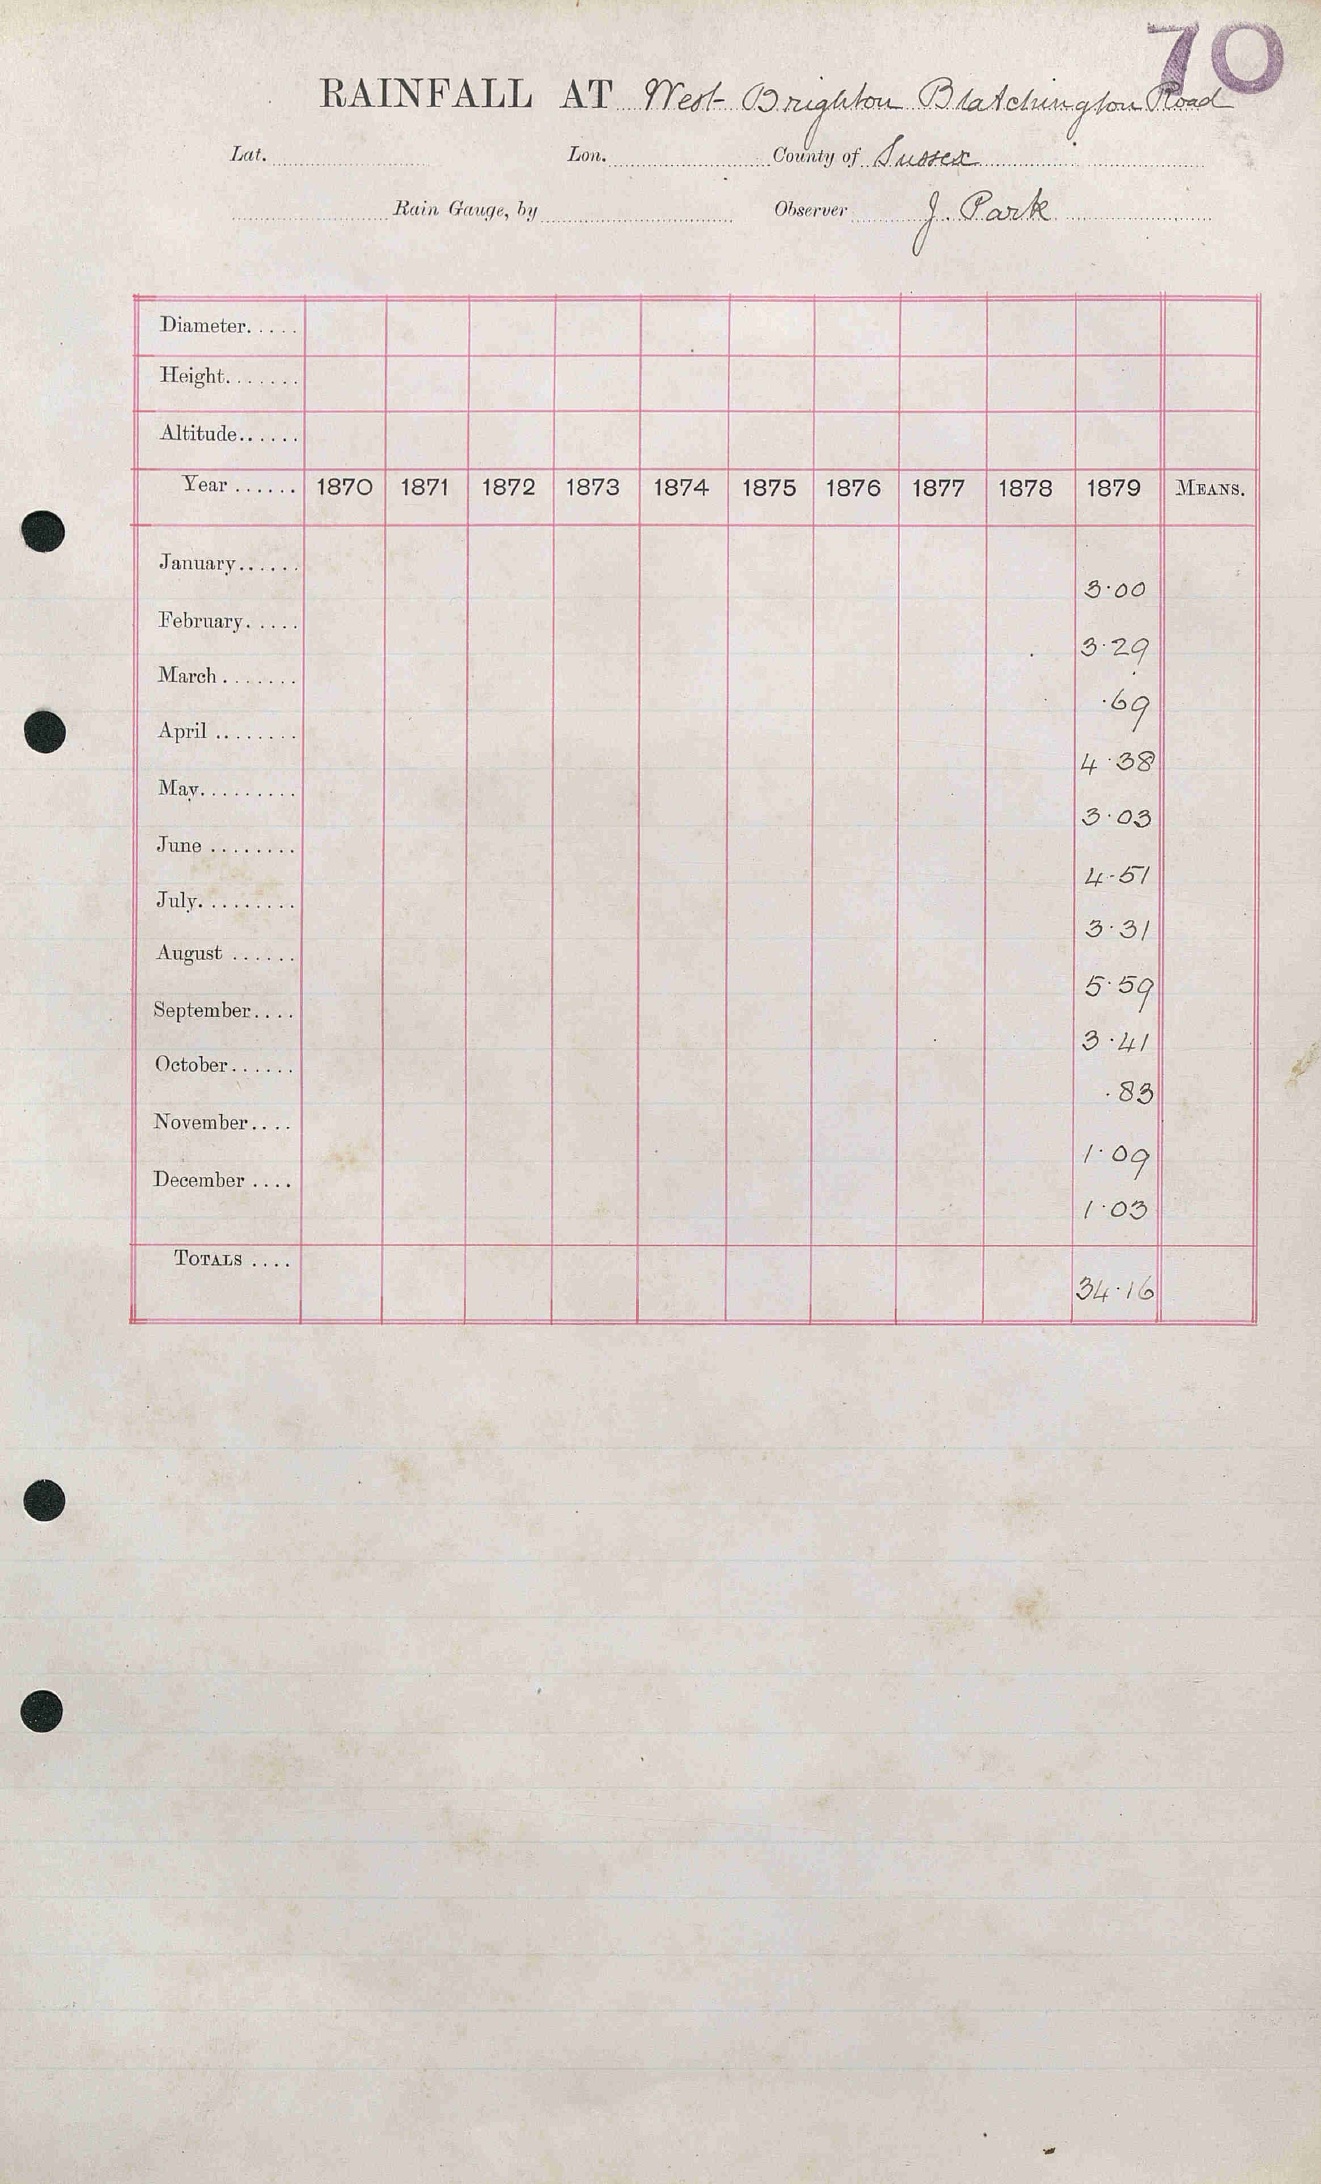 70
RAINFALL AT West Brighton Blatchington Road
Lat. Lon. County of Sussex
Rain Gauge, by Observer J. Park
Diameter.....
Height.......
Altitude......
Year ...... 1870 1871 1872 1873 1874 1875 1876 1877 1878 1879 MEANS.
January...... 3.00
February..... 3.29
March ....... .69
April ........ 4.38
May......... 3.03
June ........ 4.51
July......... 3.31
August ...... 5.59
September.... 3.41
October...... .83
November.... 1.09
December .... 1.03
TOTALS .... 34.16